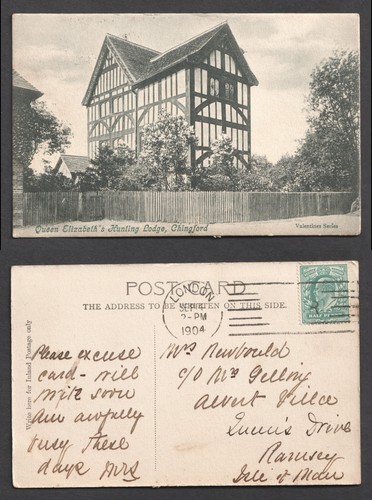 Queen Elizabeth's Hunting Lodge, Chingford
Valentines Series
POST CARD
THE ADDRESS TO BE WRITTEN ON THIS SIDE.
Write here for Inland Postage only
LONDON
2-PM
1904
HALFPENNY
Please excuse
card - will
write soon
am awfully
busy these
days
Mrs Newbould
c/o Mrs Gelling
Albert Villa
Queen's Drive
Ramsey
Isle of Man